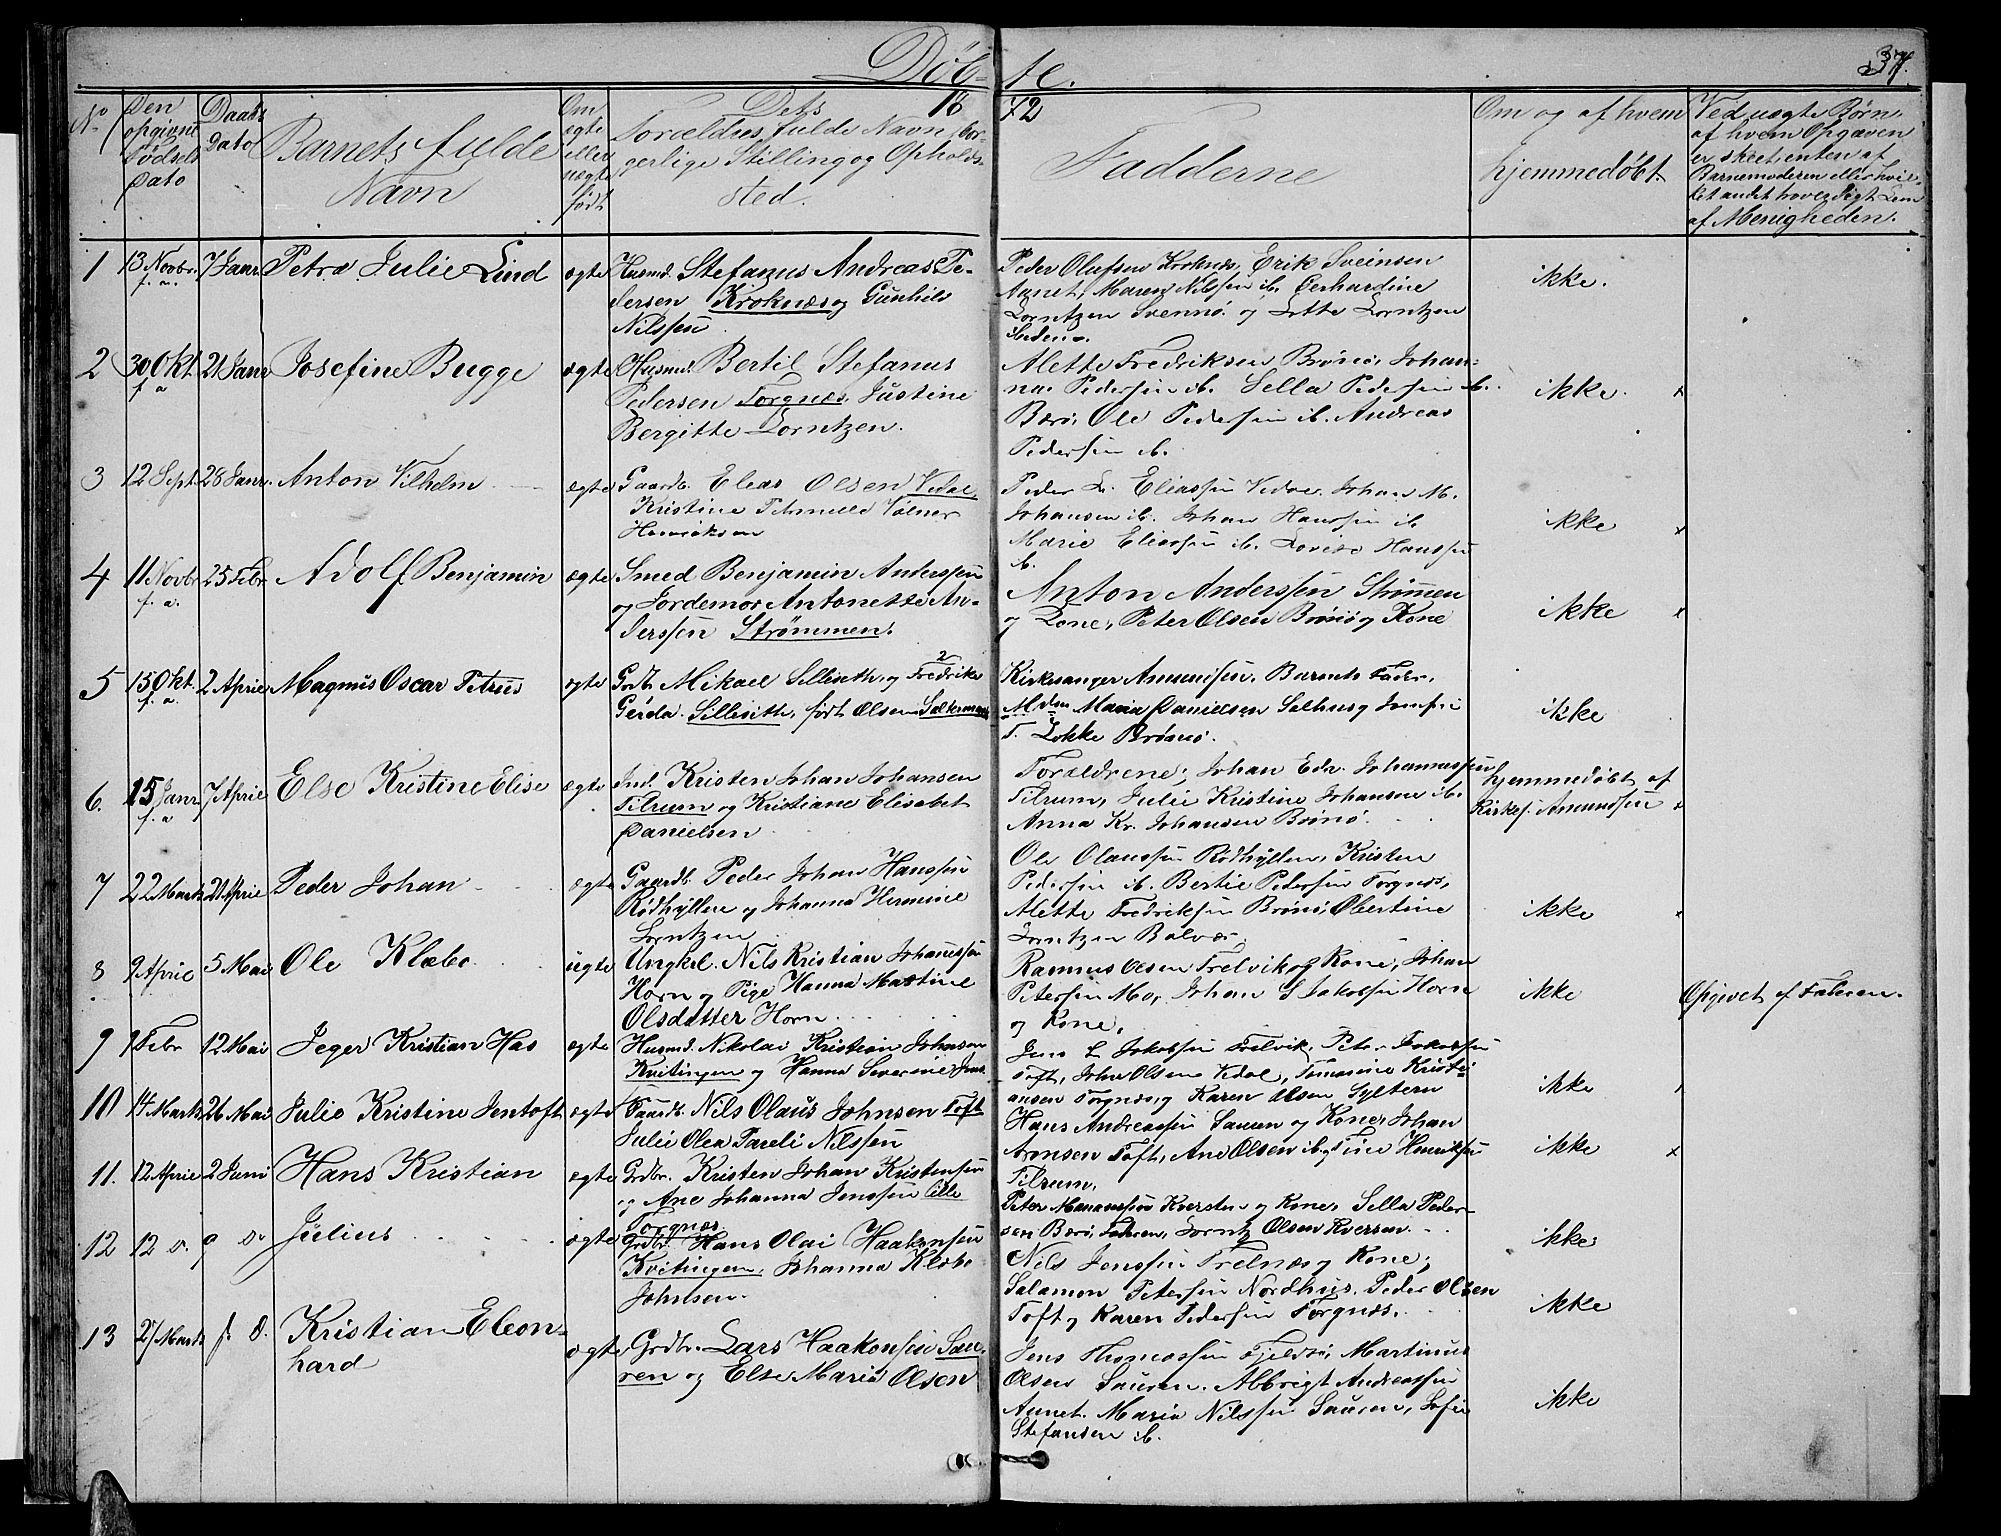 Døb- te. 37.
No
Den opgivne Fødsels Dato
Daabs Dato
Barnets fulde Navn
Om ægte eller uægte født
Dets 18
Forældres fulde Navn, bor-
gerlige Stilling og Opholds-
sted.
72
Fadderne
Om og af hvem
hjemmedøbt.
Ved uægte Børn,
af hvem Opgaven
er skeet, enten af
Barnemoderen eller hvil-
ket andet hæderligt Lem
af Menigheden.
1 13 Novbr. f. a. 7 Janr. Petra Julie Lind ægte Husmd. Stefanus Andreas Pe-
dersen Kroknæs og Gunhild
Nilssen
Peder Olufsen Kroknæs, Erik Sveinsen
Aunet, Maren Nilssen ib. Gerhardine
Lorntzen Svennø og Lotte Lorntzen
ikke.
2 30 Okt. f. a 21 Janr Josefine Bugge ægte Husmd. Bertil Stefanus
Pedersen Torgnæs, Justine
Bergitte Lorntzen.
Alette Fredriksen Brønø, Johan-
na Pedersen ib. Sella Pedersen ib.
Berø, Ole Pedersen ib. Andreas
Pedersen ib.
ikke. x
3 12 Sept. 28 Janr. Anton Vilhelm ægte Gaardb. Elias Olsen Vedal
Kristine Volner
Henriksen
Peder L. Eliassen Vedal. Johan M.
Johansen ib. Johan Hanssen ib
Marie Eliassen ib. Lovise Hanssen
ib.
ikke x
4 11 Novbr f. a. 25 Febr. Adolf Benjamin ægte Smed Benjamin Anderssen
og Jordemor Antonette An-
derssen Strømmen.
Anton Anderssen Strømmen
og Kone, Peter Olsen Brønø og Kone
ikke x
5 15 Okt. f. a. 2 April Magnus Oscar Petrus ægte Grdb. Mikael Silleseth, og Fredrikke
Gerda Silleseth, født Olsen
Kirkesanger Amundsen, Barnets Fader,
Mdm Maria Danielsen Salhus og Jomfru
T. Løkke Brønø.
ikke
6. 15 Janr f. a 7 April Else Kristine Elise ægte Ind. Kristen Johan Johansen
Tilrum og Kristiane Elisabet
Danielsen
Forældrene, Johan Edv. Johannessen
Tilrum, Julie Kristine Johansen ib.
Anna Kr. Johansen Brønø.
hjemmedøbt af
Kirkes. Amundsen x
7 22 Marts 21 April Peder Johan ægte Gaardb. Peder Johan Hanssen
Rødhyllen og Johanna Hermine
Lorntzen
Ole Olaussen Rødhyllen, Kristen
Pedersen ib. Bertil Pedersen Torgnæs,
Alette Fredriksen Brønø, Obertine
Lorntzen Bolvær.
ikke x
8 9 April 5 Mai Ole Klæbo uægte Ungkrl. Nils Kristian Johanssen
Horn og Pige Hanna Martine
Olsdatter Horn
Rasmus Olsen Trelvik og Kone, Johan
Petersen Mo, Johan S Jakobsen Horn
og Kone,
ikke Opgivet af Faderen.
9 1 Febr 12 Mai Jeger Kristian Has ægte Husmd. Nikolai Kristian Johnsen
Kvitingen og Hanna Severine
Jens L Jakobsen Trelvik, Peter Jakobsen
Toft, John Olsen Vedal, Tomasine Kristi-
ansen Torgnæs og Karen Olsen Sylteren
ikke
10 14 Marts 26 Mai Julie Kristine Jentoft ægte Gaardb. Nils Olaus Johnsen Toft
Julie Olea Pareli Nilssen
Hans Andreassen Sauren og Kone, Johan
Aronsen Toft, Ane Olsen ib. og Tine Henriksen
Tilrum,
ikke x
11. 12 April 2 Juni Hans Kristian ægte Grdbr. Kristen Johan Kristensen
og Ane Johanna Jenssen Lille
Torgnæs
Peter Kversten og Kone, Sella Peder-
sen Berø, Faderen, Lorntz Olsen
ikke
12 12 d. 9 d. Julius ægte Grdbr. Hans Olai Haakonsen
Kvitingen, Johanna Klæbo
Johnsen.
Nils Jenssen Trelnæs og Kone,
Salamon Petersen Nordhus, Peder Olsen
Toft og Karen Pedersen Torgnæs.
ikke
13 27 Marts s. d. Kristian Eleon-
hard
ægte Grdbr. Lars Haakonsen Sau-
ren og Else Maria Olsen
Jens Thomassen Fjeldsø, Martinus
Olsen Sauren, Albrigt Andreassen
Aunet. Maria Nilssen Sauren, Sofie
Stefansen ib.
ikke